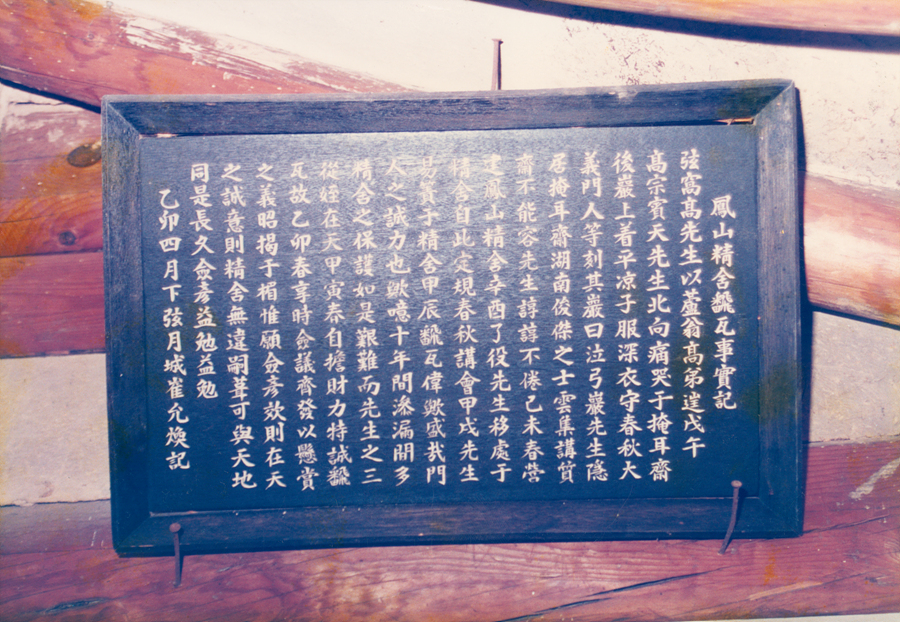 鳳山精舍飜瓦事實記
弦窩高先生以蘆翁高弟逮戊午
高宗賓天先生北向痛哭于掩耳齋
後巖上着平凉子服深衣守春秋大
義門人等刻其巖曰泣弓巖先生隱
居掩耳齋湖南俊傑之士雲集講質
齋不能容先生諄諄不倦己未春營
建鳳山精舍辛酉了役先生移處于
精舍自此定規春秋講會甲戌先生
易簀于精舍甲辰飜瓦偉歟盛哉門
人之誠力也歟噫十年間滲漏閼多
精舍之保護如是艱難而先生之三
從姪在天甲寅春自擔財力特誠飜
瓦故乙卯春享時僉議齊發以懸賞
之義昭揭于楣惟願僉彥效則在天
之誠意則精舍無違嗣葺可與天地
同是長久僉彥益勉益勉
乙卯四月下弦月城崔允煥記